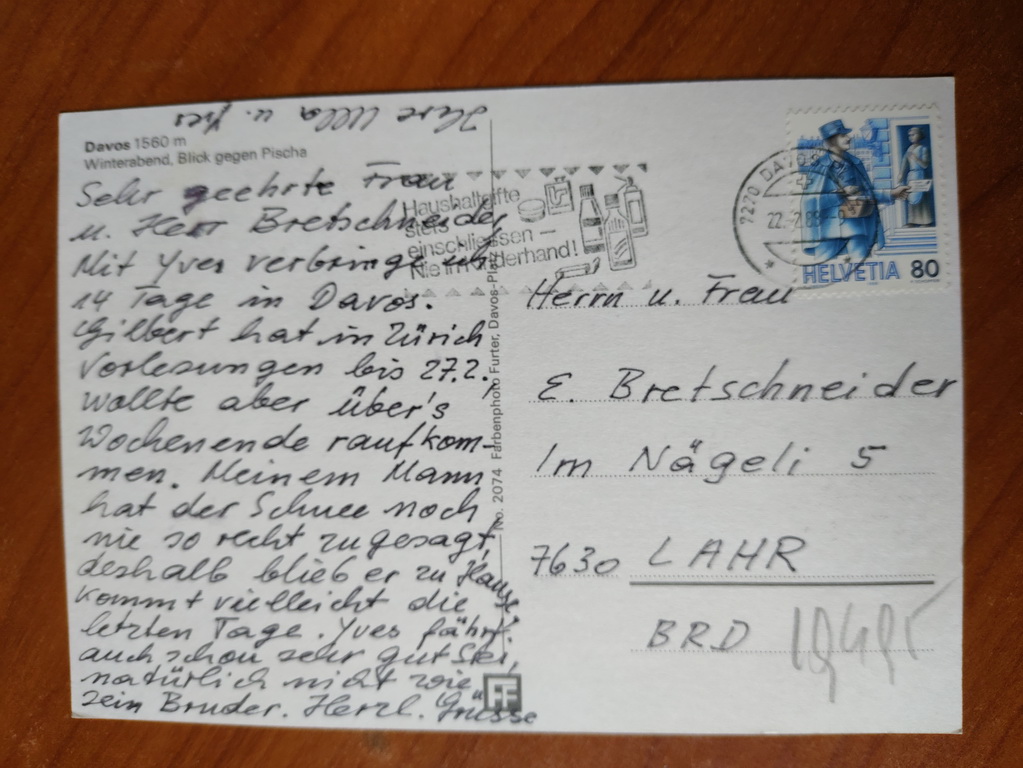 Davos 1560 m
Winterabend, Blick gegen Pischa
Sehr geehrte Frau
u. Herr Bretschneider
Mit Yves verbringe ich
14 Tage in Davos.
Gilbert hat in Zürich
Vorlesungen bis 27.2.,
wollte aber über's
Wochenende raufkom-
men. Meinem Mann
hat der Schnee noch
nie so recht zugesagt,
deshalb blieb er zu Hause
kommt vielleicht die
letzten Tage. Yves fährt
auch schon sehr gut Ski,
natürlich nicht wie
sein Bruder. Herzl. Grüsse
Ulla u. Yves
No. 2074 Farbenphoto Furter, Davos-Platz
FF
Haushaltgifte
stets
einschliessen –
Nie in Kinderhand!
7270 DAVOS
HELVETIA 80
Herrn u. Frau
E. Bretschneider
Im Nägeli 5
7630 LAHR
BRD